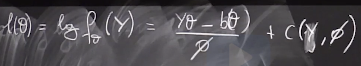 l(θ) = log f_θ(Y) = (Yθ - b(θ))/ϕ + c(Y, ϕ)